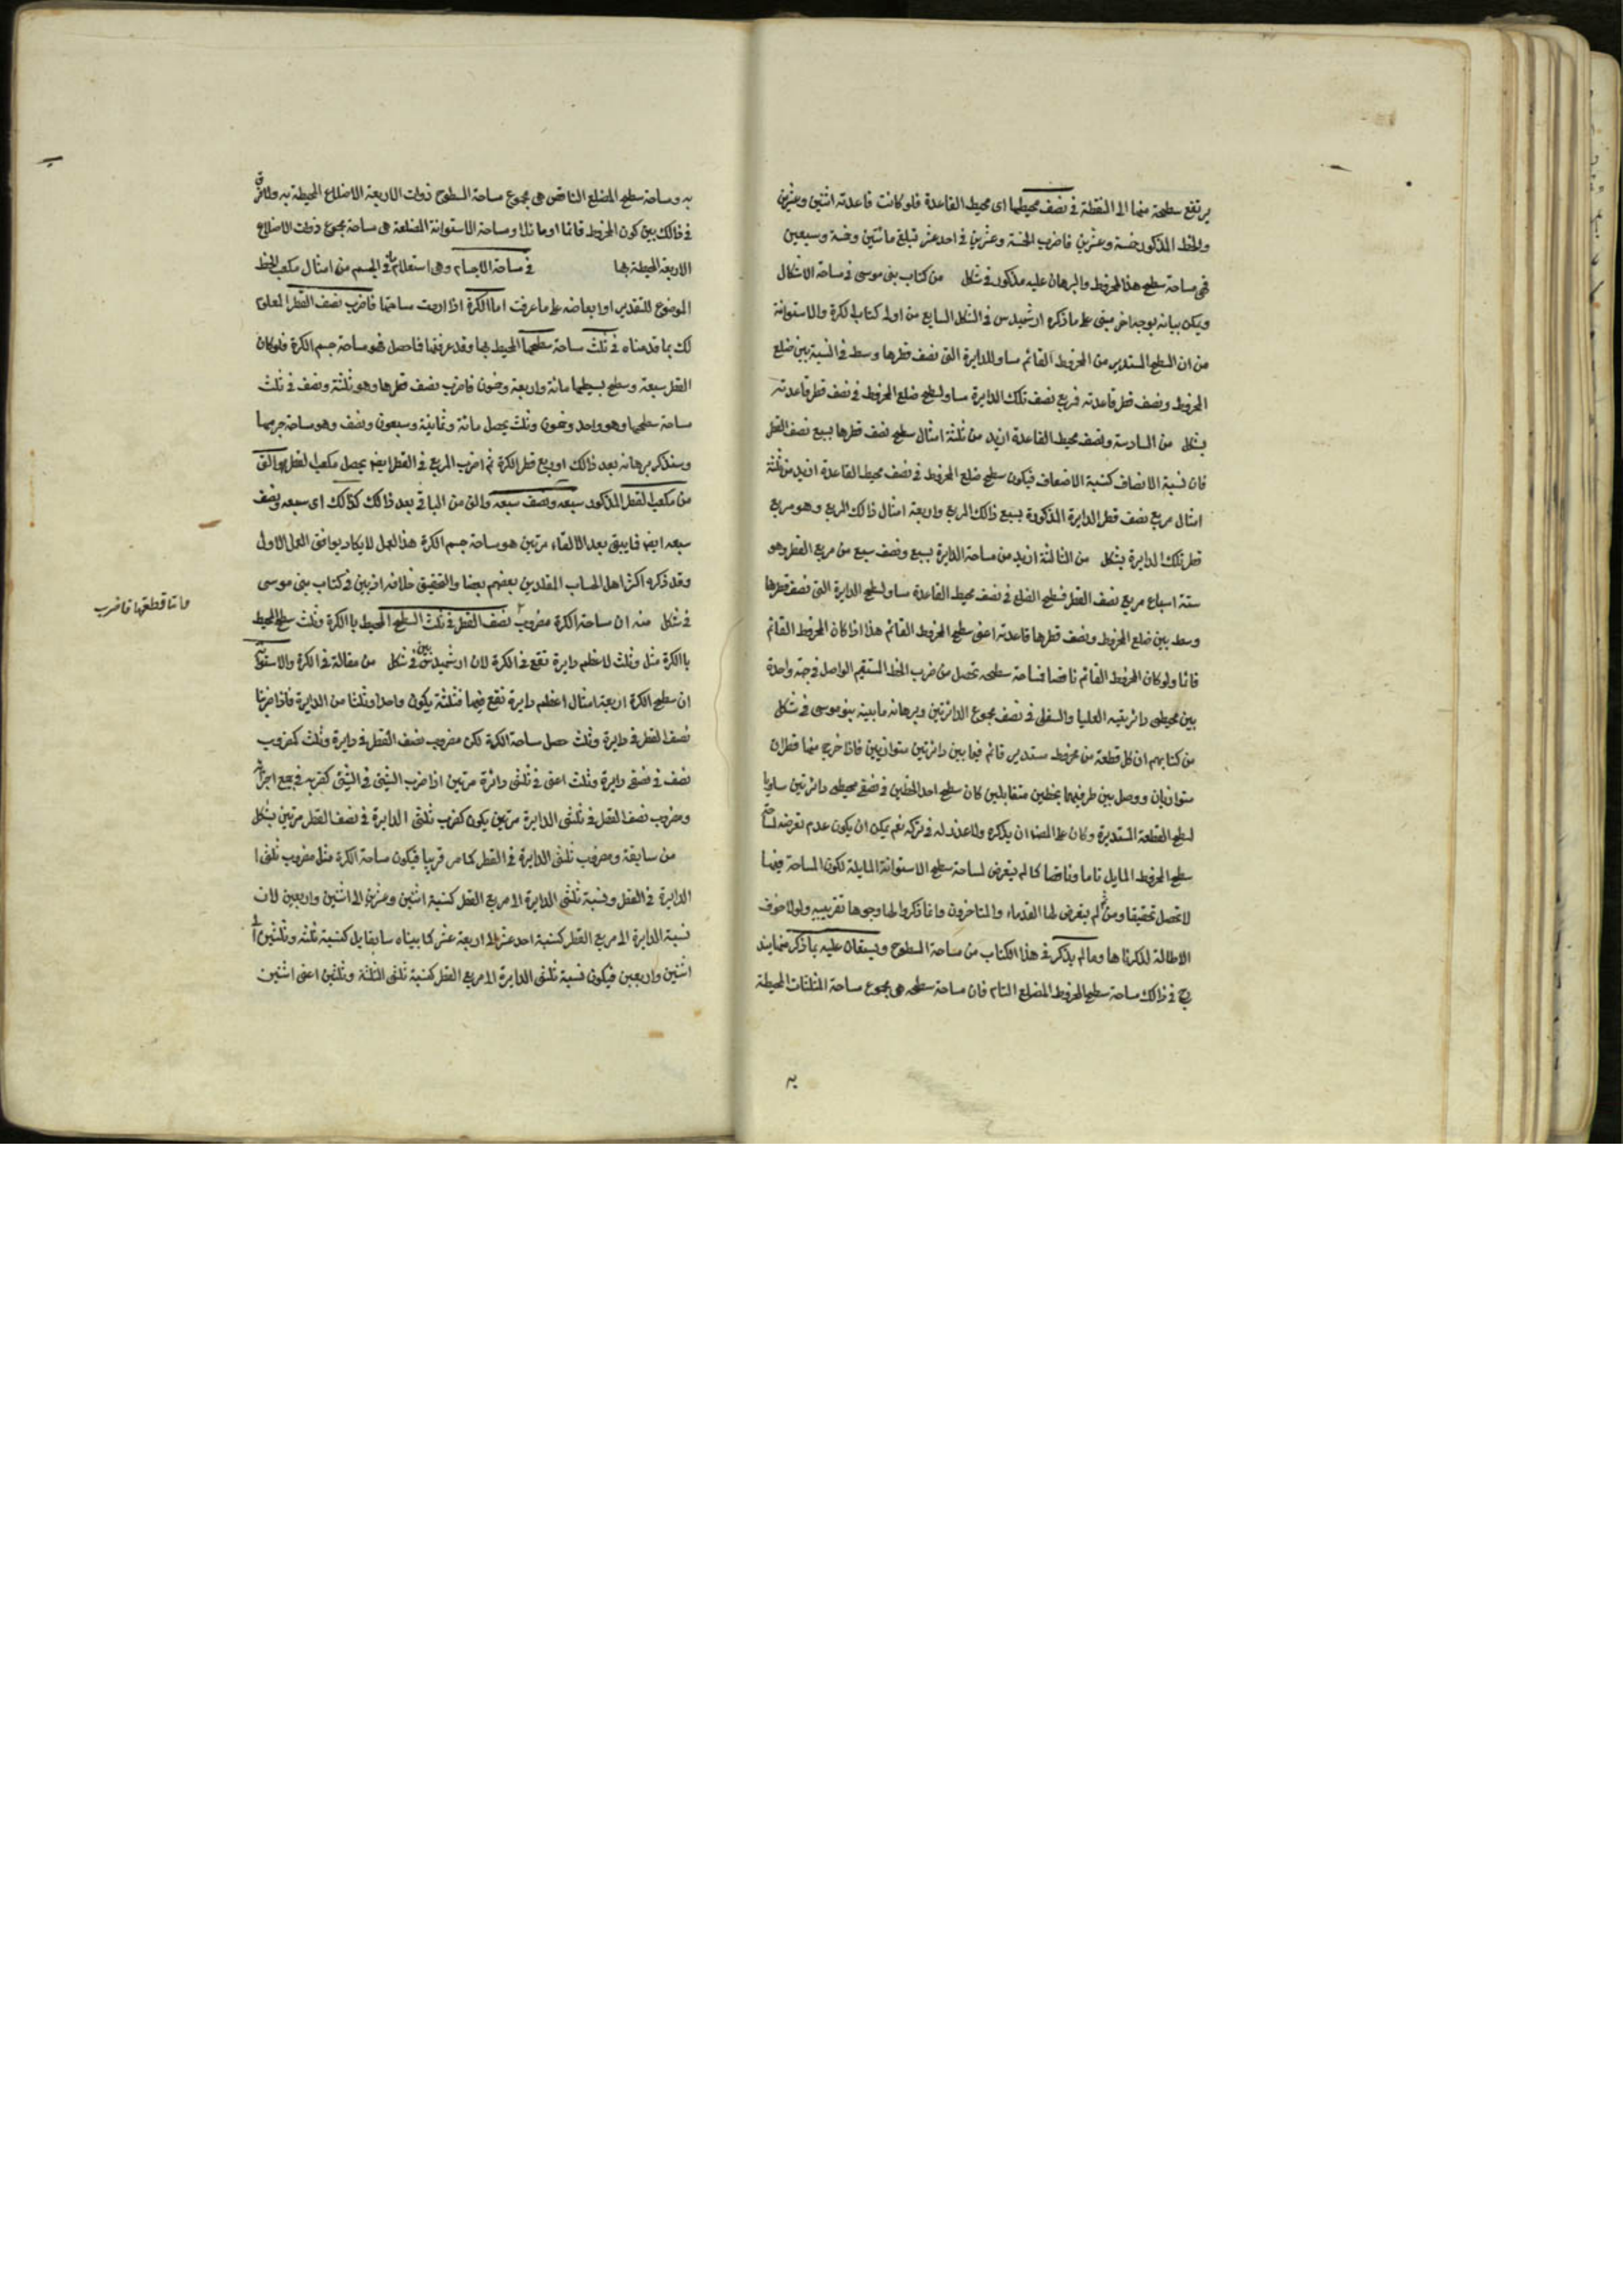 يرتفع سطحه منها الى النقطة في نصف محيطها اى محيط القاعدة فلو كانت قاعدته اثنين وعشرين
والخط المذكور خمسة وعشرين فاضرب الخمسة وعشرين في احد عشر تبلغ مائتين وخمسة وسبعين
فهى مساحة سطح هذا المخروط والبرهان عليه مذكور في شكل من كتاب بنى موسى في مساحة الاشكال
ويمكن بيانه بوجه اخر مبنى على ما ذكره ارشميدس في الشكل السابع من اولى كتاب الكرة والاستوانة
من ان السطح المستدير من المخروط القائم مساو للدايرة التى نصف قطرها وسط في النسبة بين ضلع
المخروط ونصف قطر قاعدته فربع نصف تلك الدايرة مساو لسطح ضلع المخروط في نصف قطر قاعدته
بشكل من السادسة ونصف محيط القاعدة ازيد من ثلثة امثال سطح نصف قطرها بسبع نصف القطر
فان نسبة الانصاف كنسبة الاضعاف فيكون سطح ضلع المخروط في نصف محيط القاعدة ازيد من ثلثة
امثال مربع نصف قطر الدايرة المذكورة بسبع ذالك المربع واربعة امثال ذالك المربع وهو مربع
قطر تلك الدايرة بشكل من الثالثة ازيد من مساحة الدايرة بسبع ونصف سبع من مربع القطر وهو
ستة اسباع مربع نصف القطر فسطح الضلع في نصف محيط القاعدة مساو لسطح الدايرة التى نصف قطرها
وسط بين ضلع المخروط ونصف قطرها قاعدته اعنى سطح المخروط القائم هذا اذا كان المخروط القائم
قائما ولو كان المخروط القائم ناقصا فمساحة سطحه تحصل من ضرب الخط المستقيم الواصل في جهة واحدة
بين محيطى دائرتيه العليا والسفلى في نصف مجموع الدائرتين وبرهانه ما بينه بنو موسى في شكل
من كتابهم ان كل قطعة من مخروط مستدير قائم فيما بين دائرتين متوازيين فاذا خرج منها قطران
متوازيان ووصل بين طرفيهما بخطين متقابلين كان سطح احد الخطين في نصفى محيطى دائرتين مساويا
لسطح القطعة المستديرة وكان على المصنف ان يذكره ولا عذر له في تركه نعم يمكن ان يكون عدم تعرضه لمساحة
سطح المخروط المايل تاما وناقصا كما لم يتعرض لمساحة سطح الاستوانة المايلة لكون المساحة فيهما
لا تحصل تحقيقا ومن ثم لم يتعرض لها القدماء والمتاخرون وانما ذكروا لها وجوها تقريبيه ولولا خوف
الاطالة لذكرناها وما لم يذكر في هذا الكتاب من مساحة السطوح ويستعان عليه بما ذكر منها يند
رج في ذالك مساحة سطح المخروط المضلع التام فان مساحة سطحه هى مجموع مساحة المثلثات المحيطة
به
به ومساحة سطح المضلع الناقص هى مجموع مساحة السطوح ذوات الاربعة الاضلاع المحيطة به ولا فرق
في ذالك بين كون المخروط قائما او مائلا ومساحة الاستوانة المضلعة هى مساحة مجموع ذوات الاضلاع
الاربعة المحيطة بها في مساحة الاجسام وهى استعلام ما في الجسم من امثال مكعب الخط
الموضوع للتقدير او ابعاضه على ما عرفت اما الكرة اذا اردت مساحتها فاضرب نصف القطر المعلوم
لك بما قدمناه في ثلث مساحة سطحها المحيط بها وقد عرفتها فما حصل فهو مساحة جسم الكرة فلو كان
القطر سبعة وسطح بسيطها مائة واربعة وخمسون فاضرب نصف قطرها وهو ثلثة ونصف في ثلث
مساحة سطحها وهو واحد وخمسون وثلث يحصل مائة وثمانية وسبعون ونصف وهو مساحة جرمها
وسنذكر برهانه بعد ذالك او ربع قطر الكرة ثم اضرب المربع في القطر ايضا يحصل مكعب القطر والق
من مكعب القطر المذكور سبعه ونصف سبعه والق من الباقى بعد ذالك كذالك اى سبعه ونصف
سبعه ايضا فما يبقى بعد الالقاء مرتين هو مساحة جسم الكرة هذا العمل لا يكاد يوافق العمل الاول
وقد ذكره اكثر اهل الحساب المقلدين بعضهم بعضا والتحقيق خلافه اذ بين في كتاب بنى موسى
في شكل منه ان مساحة الكرة مضروب نصف القطر في ثلث السطح المحيط باالكرة وثلث سطح المحيط
باالكرة مثل وثلث لاعظم دايرة تقع في الكرة لان ارشميدس بين في شكل من مقالة في الكرة والاستوانة
ان سطح الكرة اربعة امثال اعظم دايرة تقع فيها فثلثه يكون واحدا وثلثا من الدايرة فاذا ضربنا
نصف القطر في دايرة وثلث حصل مساحة الكرة لكن مضروب نصف القطر في دايرة وثلث كمضروب
نصف في نصفى دايرة وثلث اعنى في ثلثى دائرة مرتين اذا ضرب الشئ في الشئ كضربه في جميع اجزائه
ومضروب نصف القطر في ثلثى الدايرة مرتين يكون كضرب ثلثى الدايرة في نصف القطر مرتين بشكل
من سابقة ومضروب ثلثى الدايرة في القطر كما مر قريبا فيكون مساحة الكرة مثل مضروب ثلثى ا
الدايرة في القطر ونسبة ثلثى الدايرة الى مربع القطر كنسبة اثنين وعشرين الى اثنين واربعين لان
نسبة الدايرة الى مربع القطر كنسبة احد عشر الى اربعة عشر كما بيناه سابقا بل كنسبة ثلثة وثلثين الى
اثنين واربعين فيكون نسبة ثلثى الدايرة الى مربع القطر كنسبة ثلثى الثلثة وثلثين اعنى اثنين
واما قطعتها فاضرب